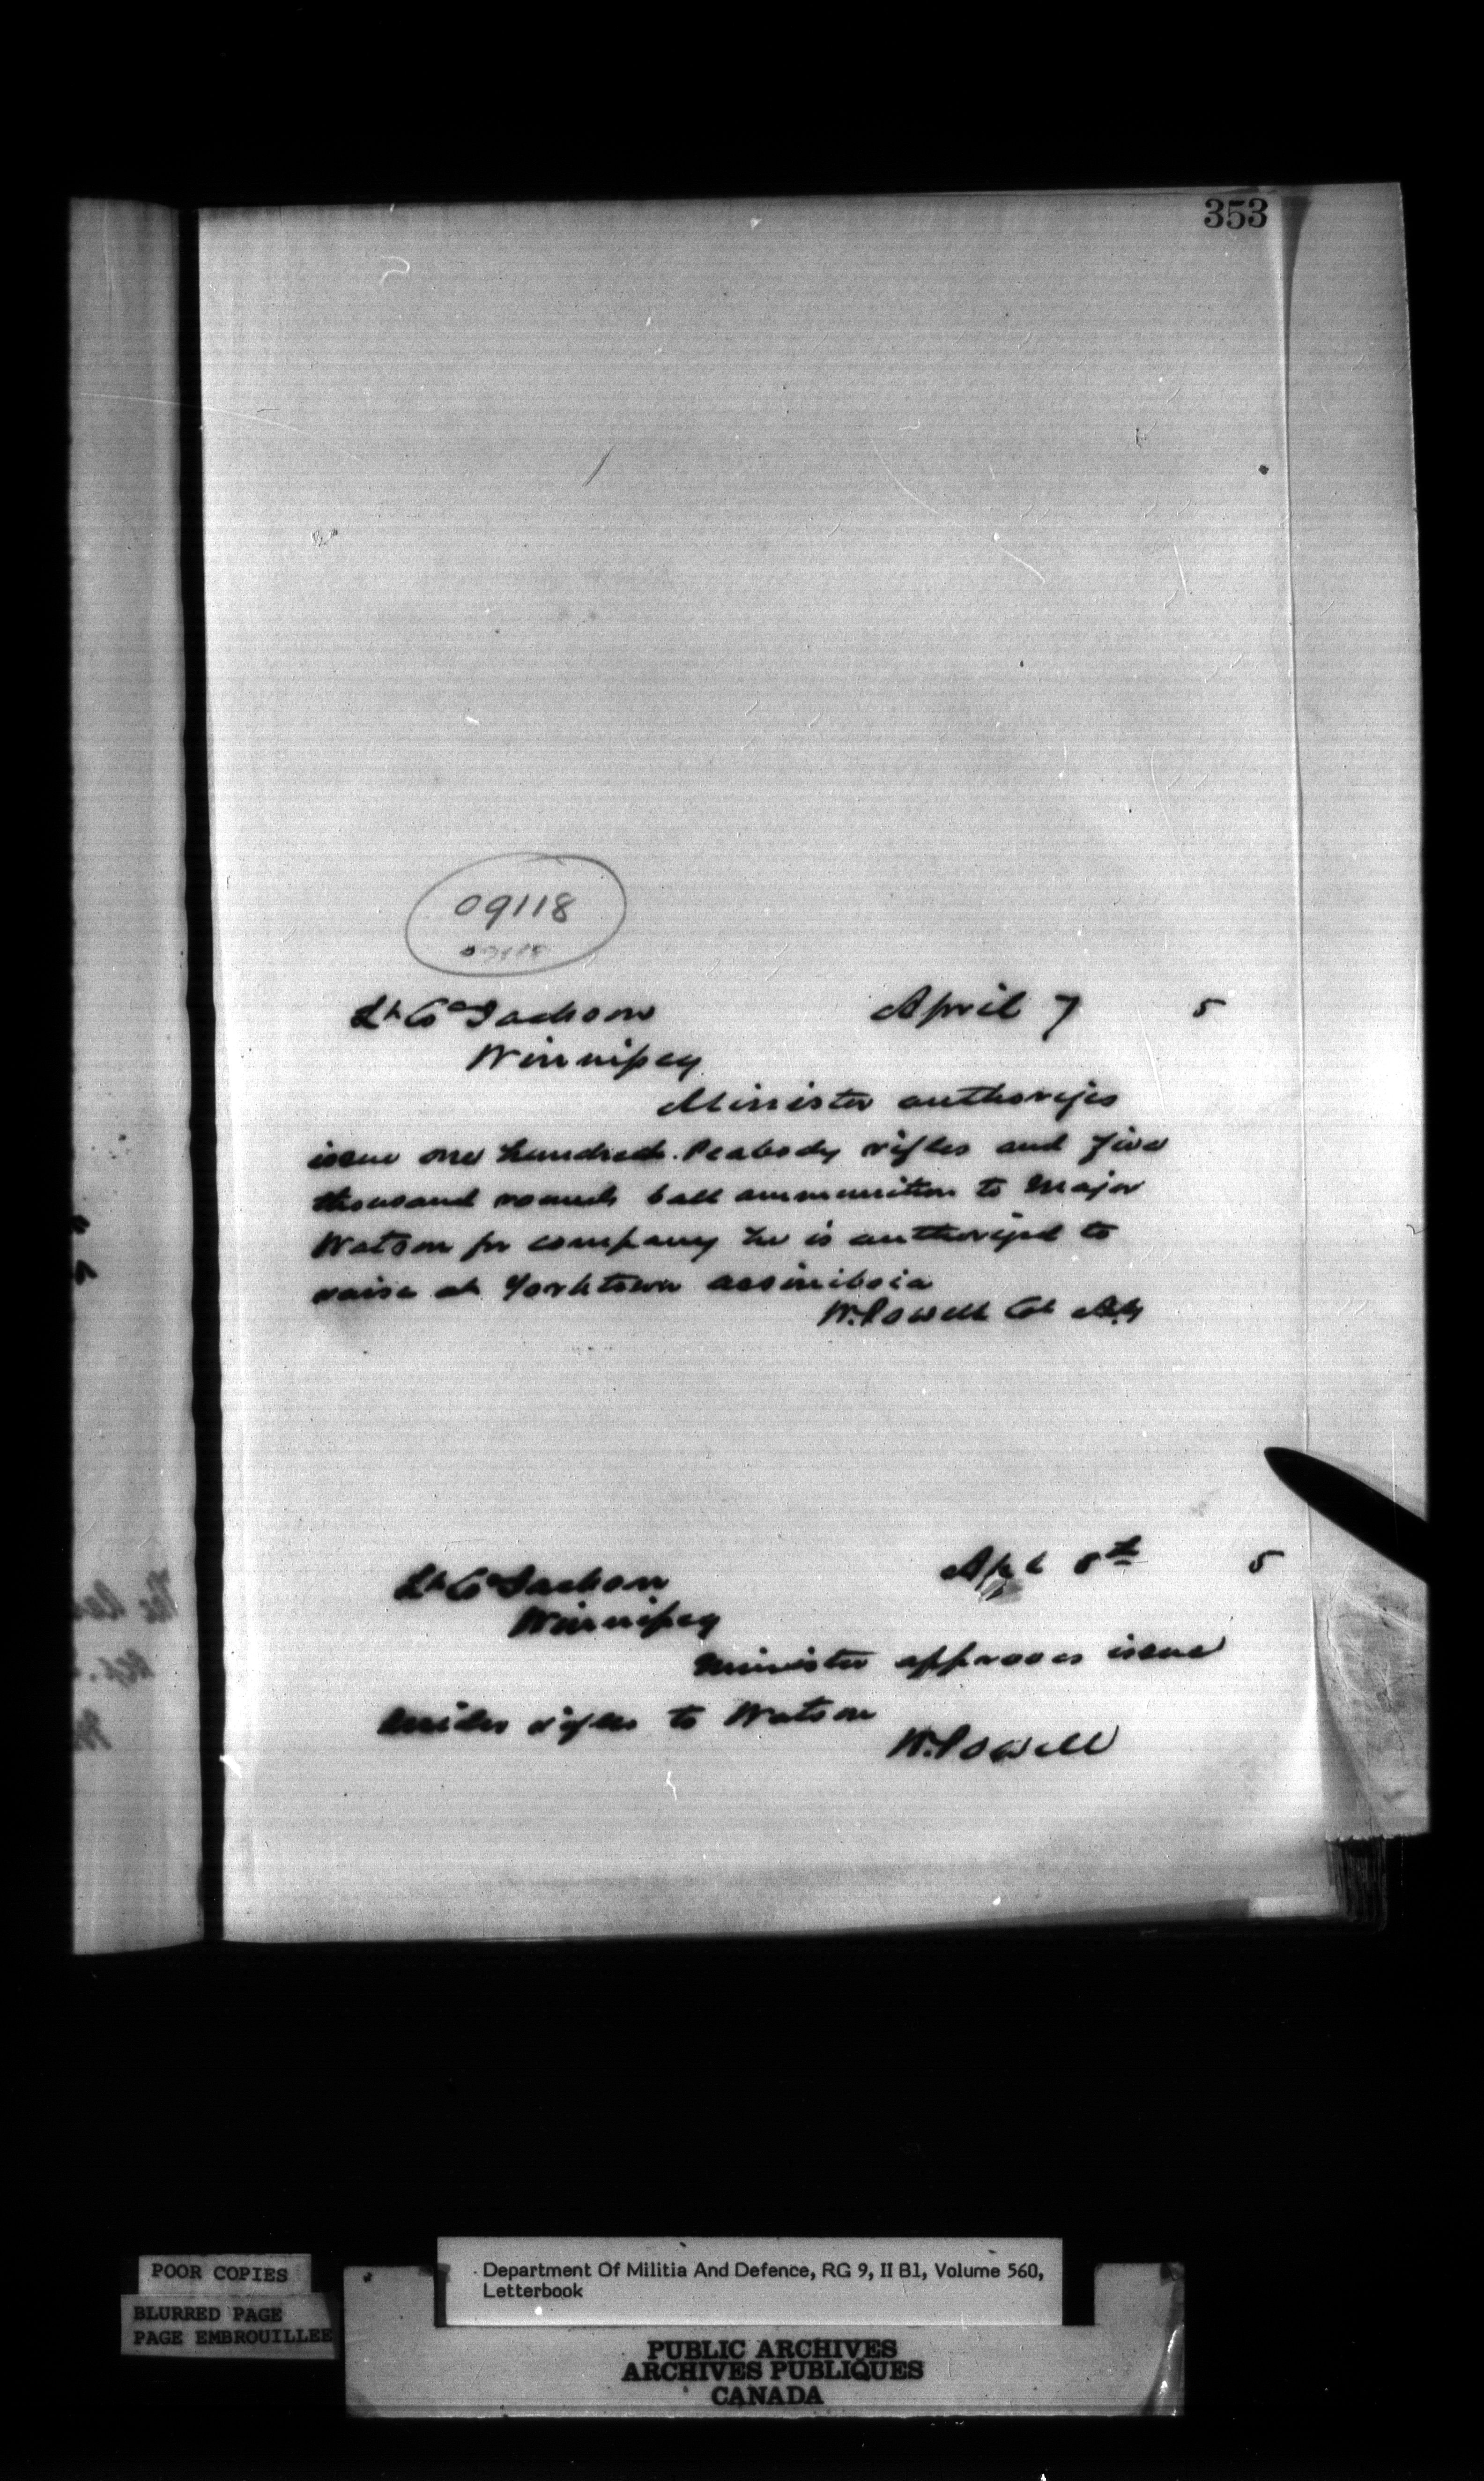 353
09118
Lt Col Jackson April 7 5
Winnipeg
Minister authorizes
issue one hundred Peabody rifles and five
thousand rounds ball ammunition to Major
Watson for company he is authorized to
raise at Yorktown assiniboia
W. Powell Col AG
Lt Col Jackson Apl 8th 5
Winnipeg
Minister approves issue
Snider rifles to Watson
W. Powell
POOR COPIES
BLURRED PAGE
PAGE EMBROUILLEE
Department Of Militia And Defence, RG 9, II B1, Volume 560,
Letterbook
PUBLIC ARCHIVES
ARCHIVES PUBLIQUES
CANADA